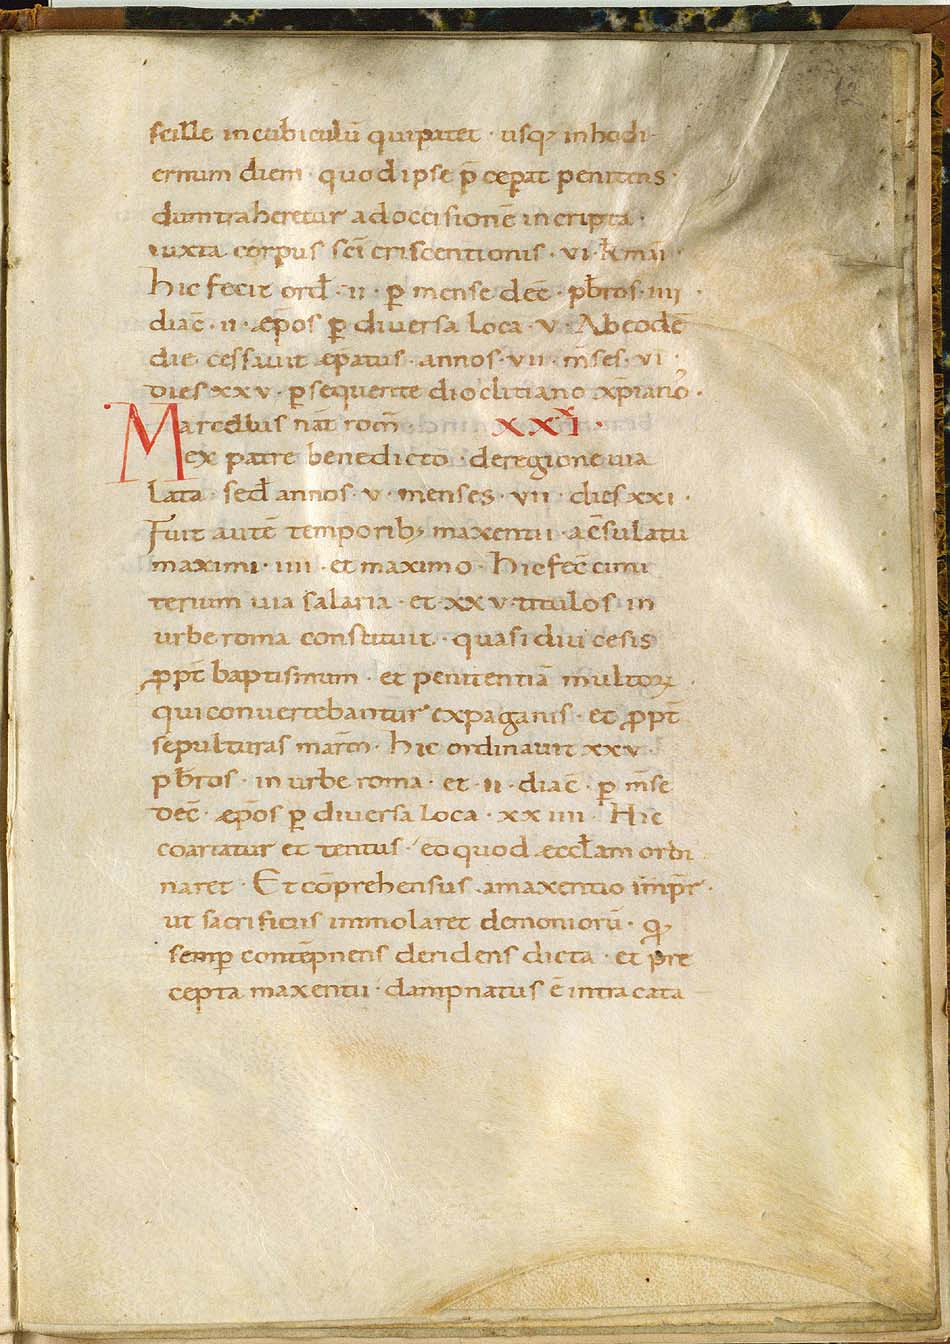 scille incubiculū quipatet · usq; inhodi
ernum diem · quod ipse p̄ceperat penitens ·
dum traheretur ad occisionē incripta ·
iuxta corpus sc̄i criscentionis · vi · k̄ maī ·
hic fecit ord̄ · ii · ꝑ mense dec̄ · pb̄ros · iiii ·
diac̄ · ii · æp̄os ꝑ diversa loca · v · Ab eodē
die cessavit æp̄atus · annos · vii · m̄ses · vi ·
dies xxv · ꝑsequente dioclitiano xpianos ·
Marcellus nat̄ rom̄ · xxxi ·
ex patre benedicto · deregione via
lata · sed̄ annos · v · menses · vii · dies xxi ·
Fuit autē temporib; maxentii · a c̄sulatu
maximi · iiii · et maximo · Hic fec̄ cimi
terium via salaria · et · xxv · titulos in
urbe roma constituit · quasi diu cesis
ꝓpt̄ baptismum · et penitentiā multoꝝ ·
qui convertebantur ex paganis · et ꝓpt̄
sepulturas mart̄ · hic ordinavit xxv ·
pb̄ros · in urbe roma · et · ii · diac̄ · ꝑ m̄se
dec̄ · æp̄os ꝑ diversa loca · xxiiii · Hic
coartatur et tentus · eo quod æccl̄am ordi
naret · Et cōprehensus · a maxentio imp̄r ·
ut sacrificiis immolaret demoniorū · q;
semꝑ contēpnens deridens dicta · et pre
cepta maxentii · dampnatus ē intra cata